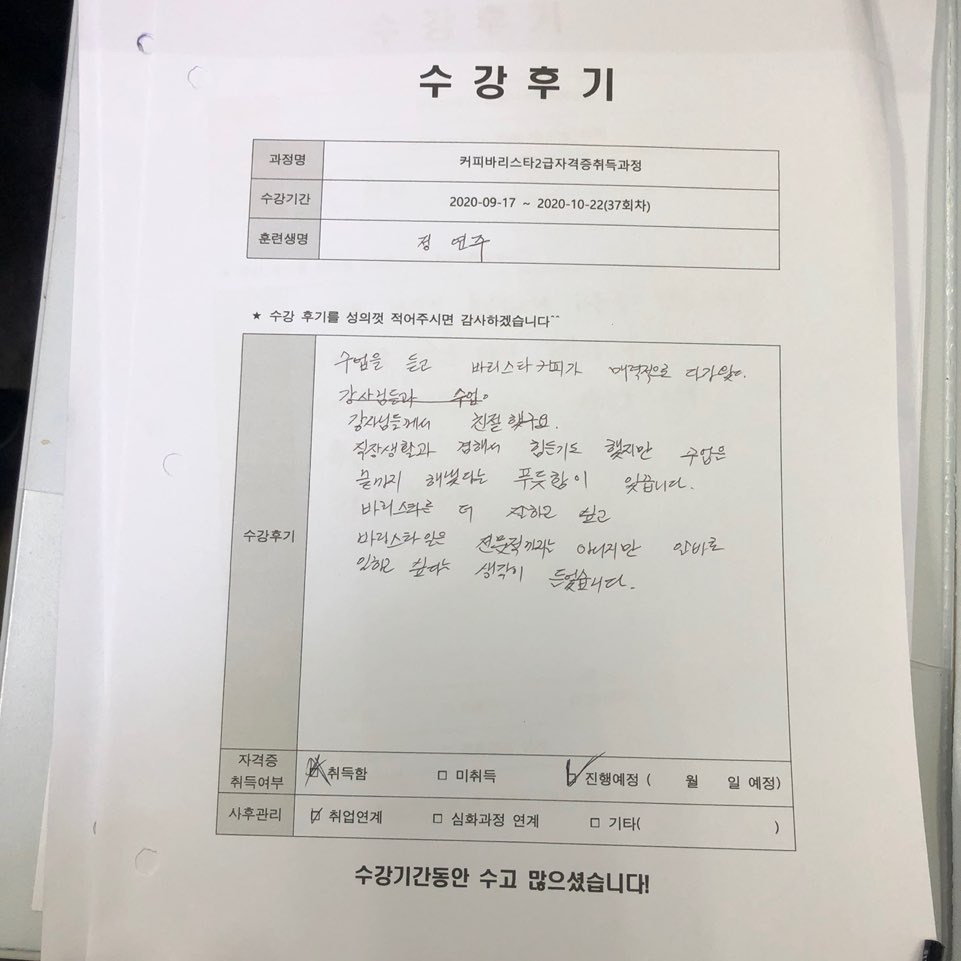 수강후기
과정명 커피바리스타2급자격증취득과정
수강기간 2020-09-17 ~ 2020-10-22(37회차)
훈련생명 정연주
★ 수강 후기를 성의껏 적어주시면 감사하겠습니다^^
수강후기
수업을 듣고 바리스타커피가 매력적으로 다가왔다.
강사님들과 수업
강사님들께서 친절했구요.
직장생활과 겸해서 힘든기도 했지만 수업은
끝까지 해냈다는 뿌듯함이 있꼽니다.
바리스타른 더 잘하고 싶고
바리스타일은 전문적까지는 아니지만 알바로
일하고 싶다는 생각이 든었습니다.
자격증 취득여부 ☑ 취득함 □ 미취득 ☑ 진행예정 ( 월 일 예정)
사후관리 ☑ 취업연계 □ 심화과정 연계 □ 기타( )
수강기간동안 수고 많으셨습니다!